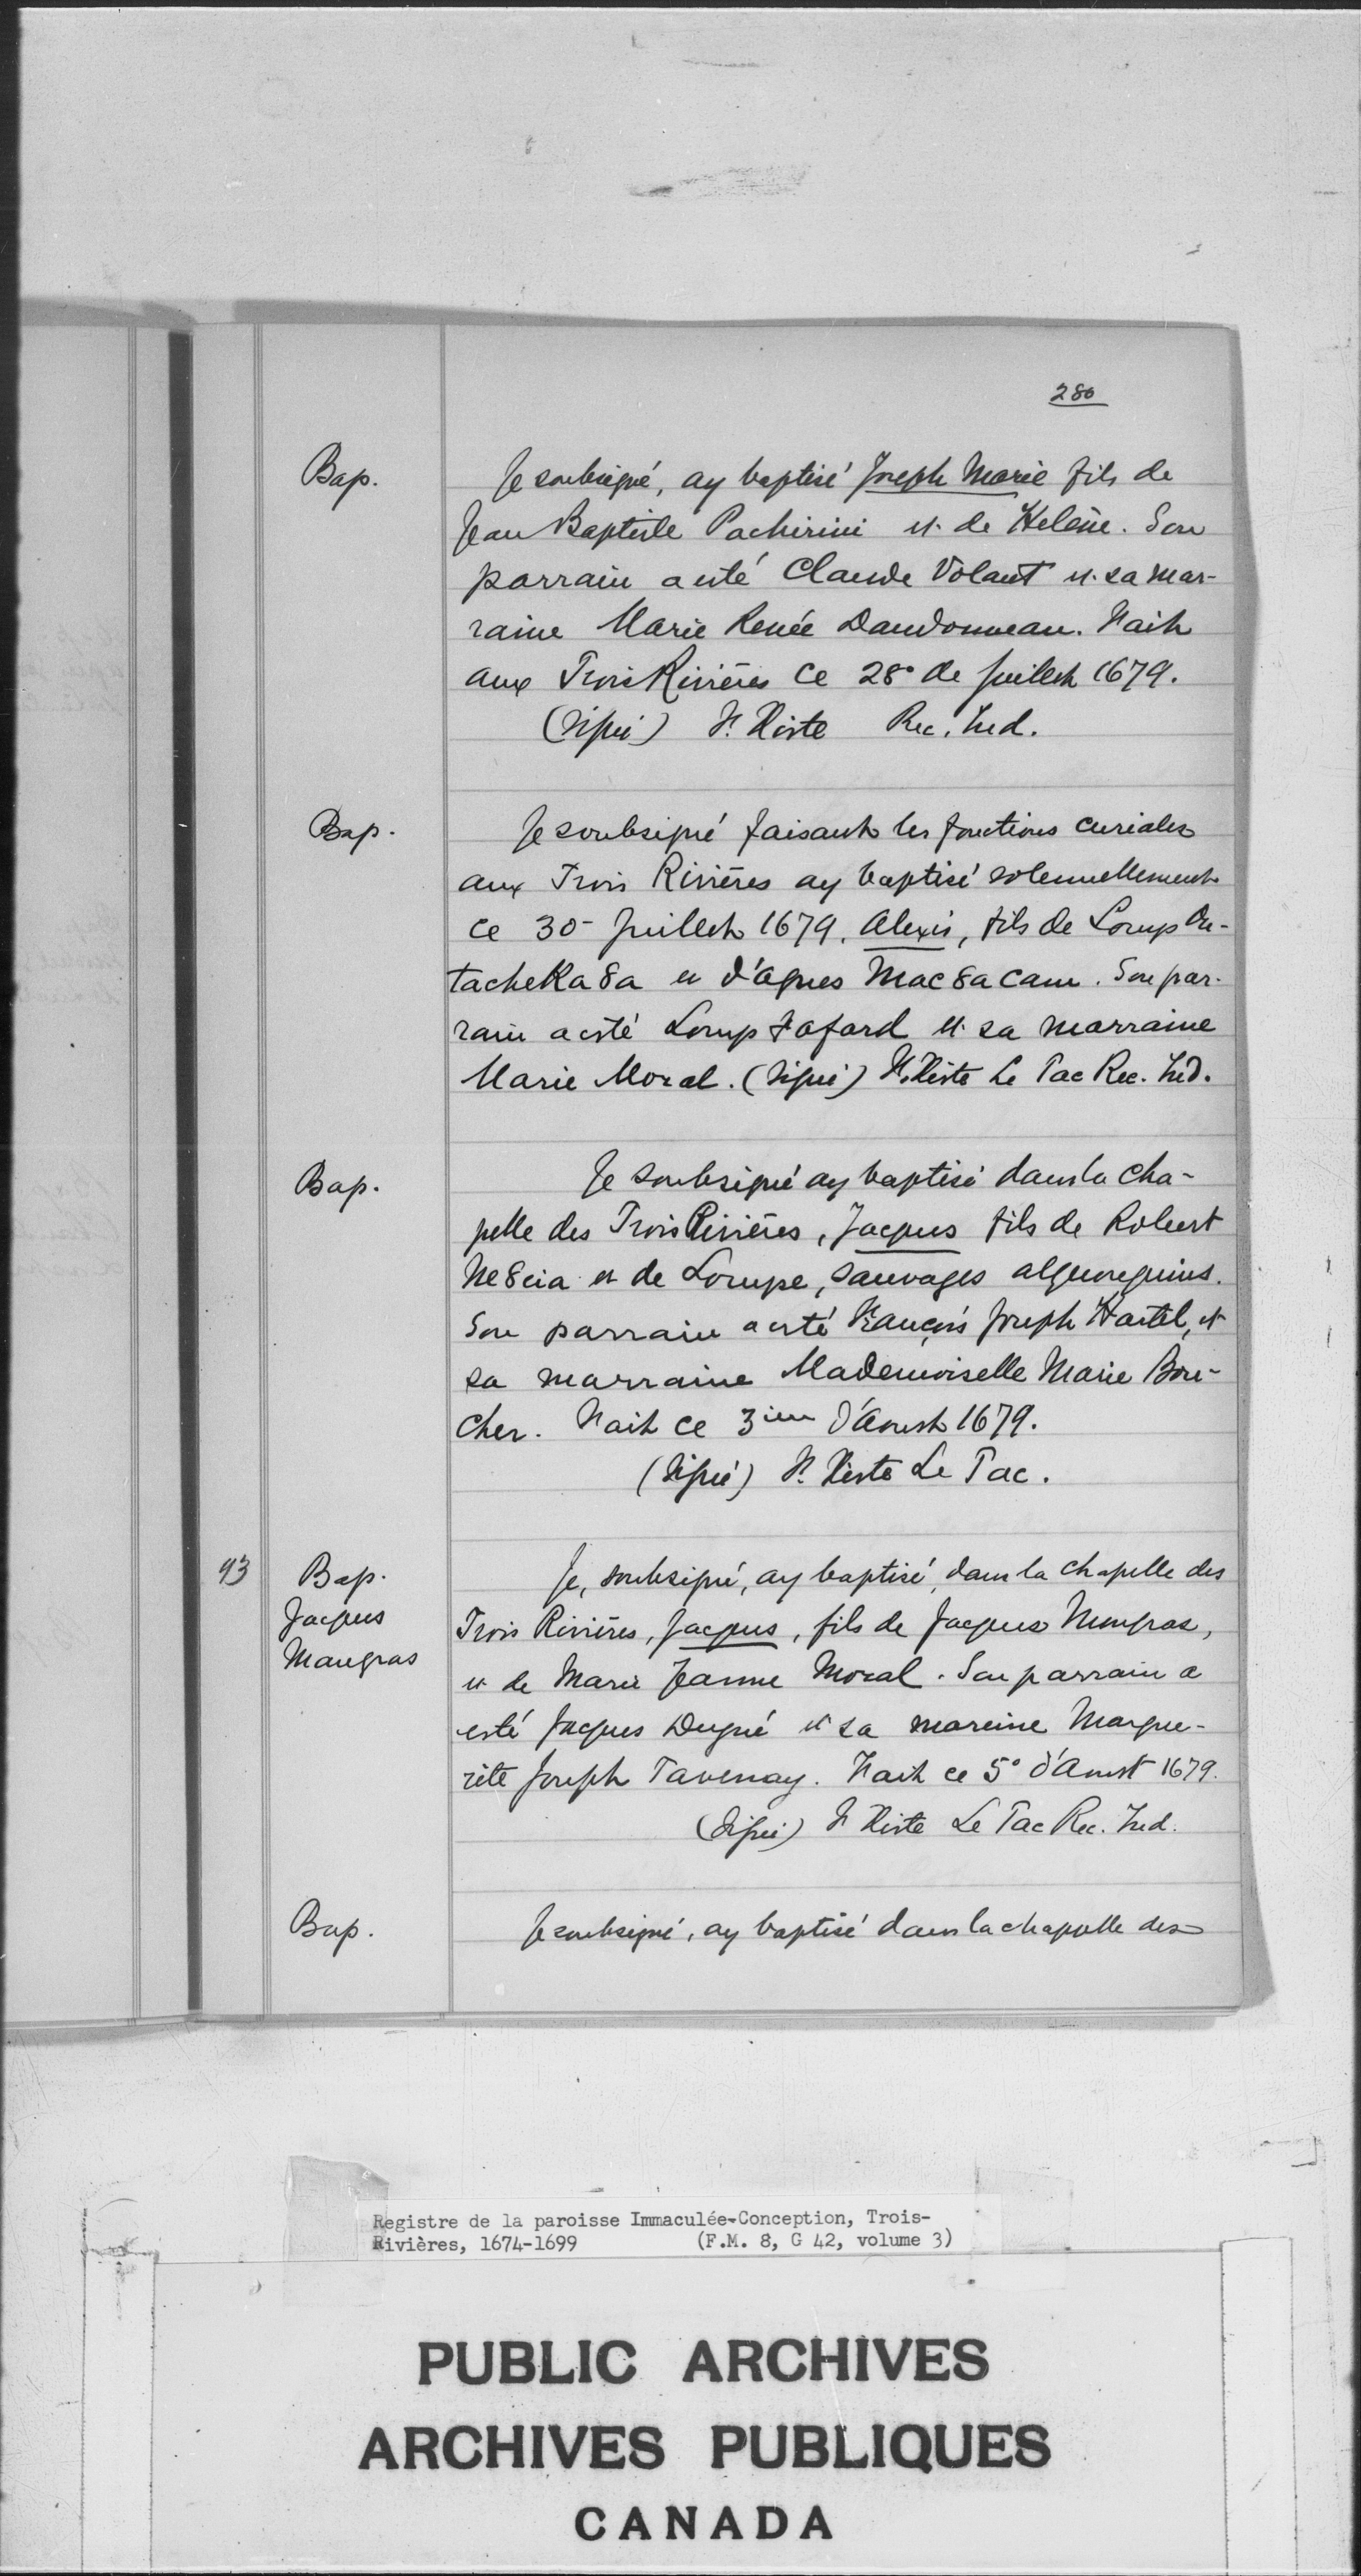 280
Bap.
Je soubsigné, ay baptisé Joseph Marie fils de
Jean Baptiste Pachirini et de Helène. Son
parrain a esté Claude Volant et sa mar-
raine Marie Renée Dandonneau. Fait
aux Trois Rivières ce 28° de Juillet 1679.
(Signé) F. Xiste Rec. Ind.
Bap.
Je soubsigné faisant les fonctions curiales
aux Trois Rivières ay baptisé solennellement
ce 30- Juillet 1679. Alexis, fils de Loup Ou-
tacheka8a et d'Agnes Mac8acam. Son par-
rain a esté Loup Fafard et sa marraine
Marie Moral. (Signé) F. Xiste Le Tac Rec. Ind.
Bap.
Je soubsigné ay baptisé dans la cha-
pelle des Trois Rivières, Jacques fils de Robert
Ne8cia et de Loupe, sauvages algonquins.
Son parrain a esté François Joseph Hartel, et
sa marraine Mademoiselle Marie Bou-
cher. Fait ce 3ième d'Aoust 1679.
(Signé) F. Xiste Le Tac.
93
Bap.
Jacques
Maugras
Je, soubsigné, ay baptisé, dans la chapelle des
Trois Rivières, Jacques, fils de Jacques Maugras,
et de Marie Jeanne Moral. Son parrain a
esté Jacques Dugué et sa mareine Margue-
rite Joseph Tavenay. Fait ce 5° d'Aoust 1679.
(Signé) F Xiste Le Tac Rec. Ind.
Bap.
Je soubsigné, ay baptisé dans la chapelle des
Registre de la paroisse Immaculée-Conception, Trois-
Rivières, 1674-1699 (F.M. 8, G 42, volume 3)
PUBLIC ARCHIVES
ARCHIVES PUBLIQUES
CANADA